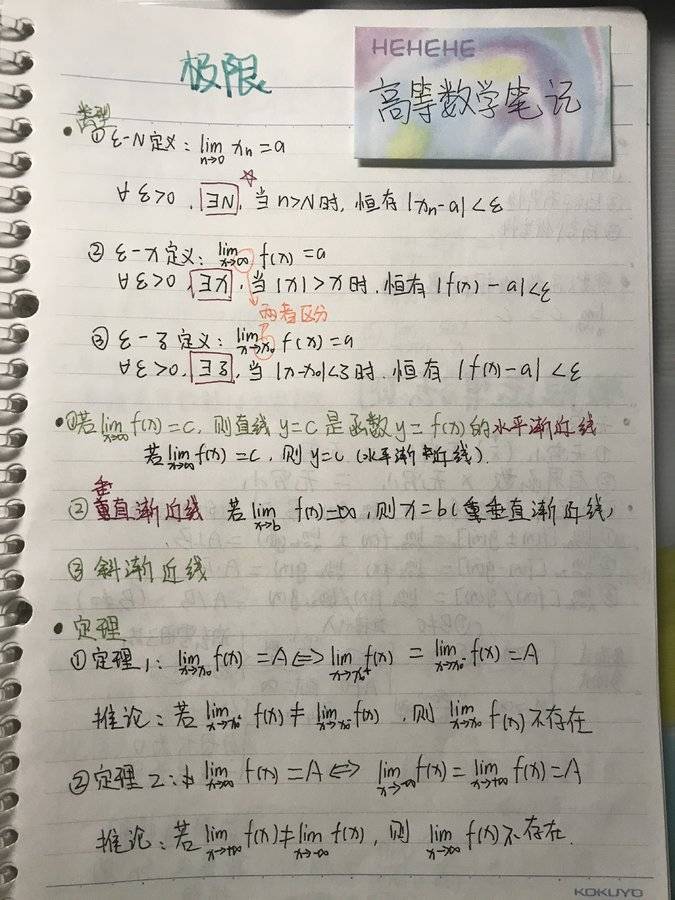 极限
HEHEHE
高等数学笔记
类型
① ε-N定义: lim n→0 xn = a
∀ε>0, ∃N, 当 n>N时, 恒有 |xn-a|<ε
② ε-x定义: lim x→∞ f(x)=a
∀ε>0, ∃x, 当 |x|>x时, 恒有 |f(x)-a|<ε
两者区分
③ ε-ξ定义: lim x→x₀ f(x)=a
∀ε>0, ∃ξ, 当 |x-x₀|<ξ时, 恒有 |f(x)-a|<ε
①若 lim x→∞ f(x)=c, 则直线 y=c 是函数 y=f(x)的水平渐近线
若 lim x→∞ f(x)=c, 则 y=c (水平渐近线).
垂
②直渐近线 若 lim x→b f(x)=∞, 则 x=b (垂直渐近线)
③ 斜渐近线
定理
①定理1: lim x→x₀ f(x)=A ⇔ lim x→x₀⁺ f(x) = lim x→x₀⁻ f(x)=A
推论: 若 lim x→x₀⁺ f(x) ≠ lim x→x₀⁻ f(x), 则 lim x→x₀ f(x) 不存在
②定理2: lim x→∞ f(x)=A ⇔ lim x→-∞ f(x)= lim x→+∞ f(x)=A
推论: 若 lim x→+∞ f(x) ≠ lim x→-∞ f(x), 则 lim x→∞ f(x)不存在.
KOKUYO